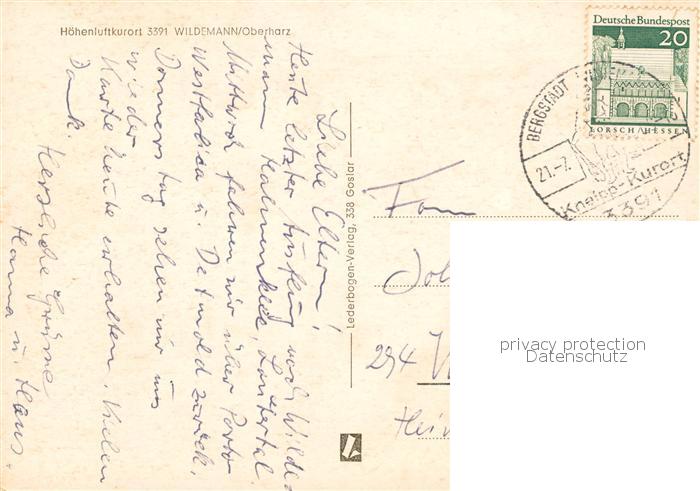 Höhenluftkurort 3391 WILDEMANN/Oberharz
Liebe Eltern!
Heute letzter Ausflug nach Wilde-
mann Hahnenklee, Lautertal.
Mittwoch fahren wir über Porta
Westfalica u. Detmold zurück.
Donnerstag sehen wir uns
wieder.
Karte heute erhalten. Vielen
Dank.
Herzliche Grüsse
Hanna u. Hans.
Lederbogen-Verlag, 338 Goslar
Deutsche Bundespost
20
LORSCH/HESSEN
BERGSTADT
21.-7.
Kneipp-Kurort
3391
Fam
294 W
privacy protection
Datenschutz